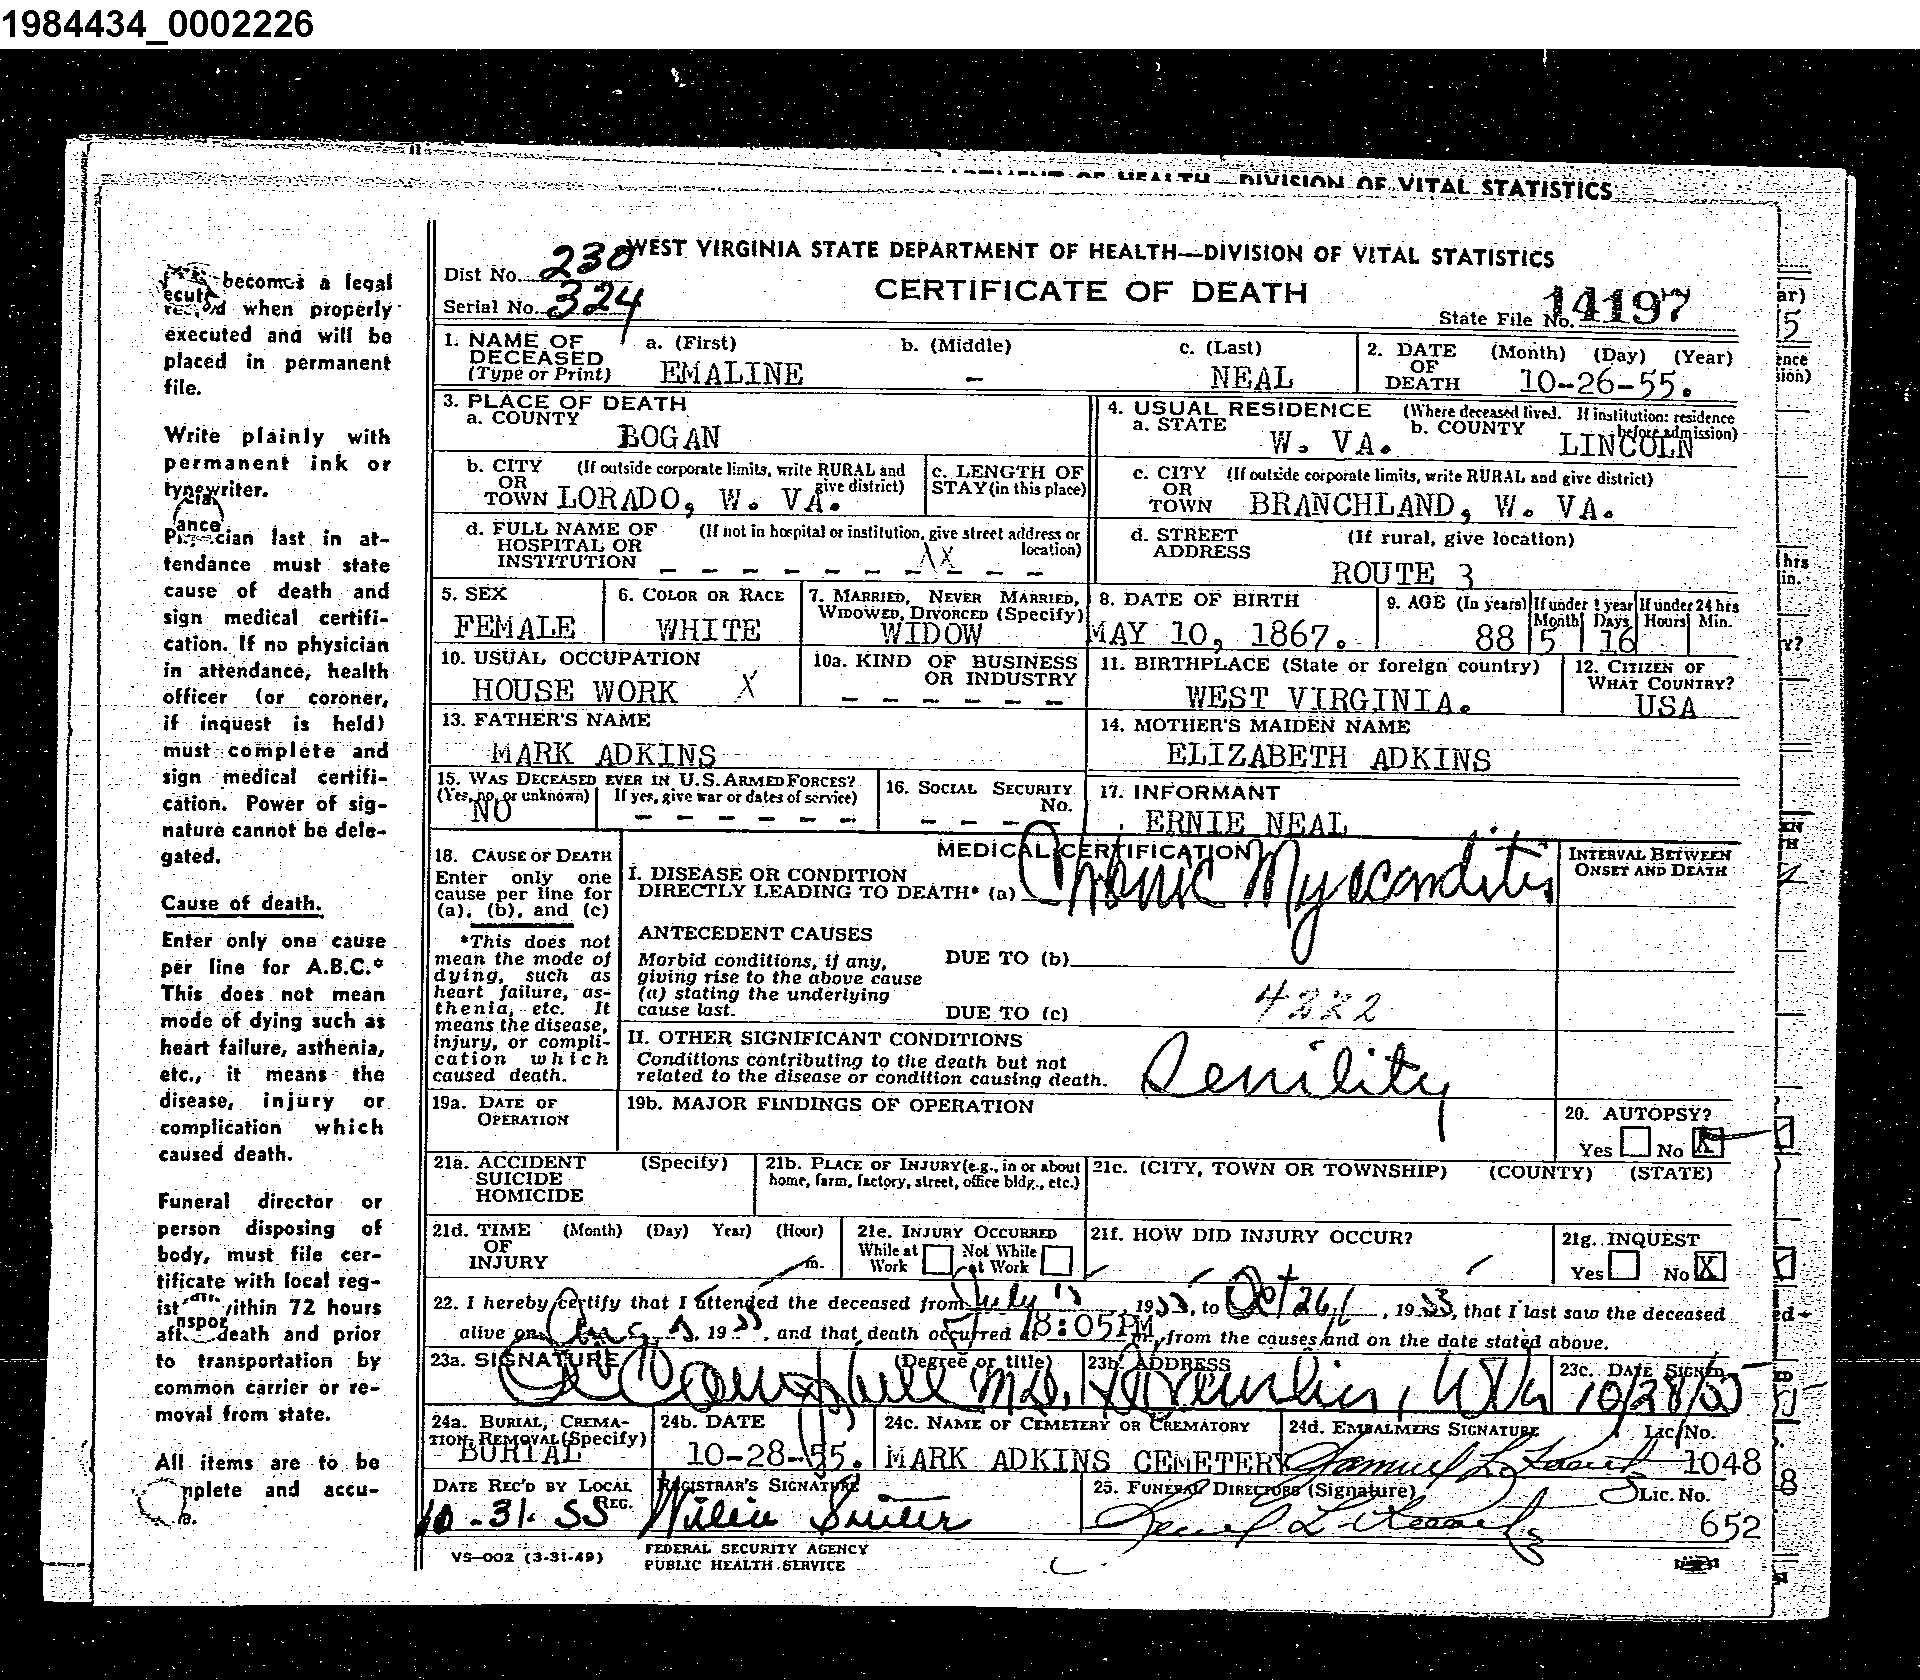 1984434_0002226
DEPARTMENT OF HEALTH—DIVISION OF VITAL STATISTICS
becomes a legal
record when properly
executed and will be
placed in permanent
file.
Write plainly with
permanent ink or
typewriter.
Physician last in at-
tendance must state
cause of death and
sign medical certifi-
cation. If no physician
in attendance, health
officer (or coroner,
if inquest is held)
must complete and
sign medical certifi-
cation. Power of sig-
nature cannot be dele-
gated.
Cause of death.
Enter only one cause
per line for A.B.C.*
This does not mean
mode of dying such as
heart failure, asthenia,
etc., it means the
disease, injury or
complication which
caused death.
Funeral director or
person disposing of
body, must file cer-
tificate with local reg-
within 72 hours
death and prior
to transportation by
common carrier or re-
moval from state.
All items are to be
complete and accu-
WEST VIRGINIA STATE DEPARTMENT OF HEALTH—DIVISION OF VITAL STATISTICS
Dist No. 230
CERTIFICATE OF DEATH
Serial No. 324
State File No. 14197
1. NAME OF DECEASED (Type or Print) a. (First) EMALINE b. (Middle) - c. (Last) NEAL
2. DATE OF DEATH (Month) (Day) (Year) 10-26-55.
3. PLACE OF DEATH
a. COUNTY BOGAN
4. USUAL RESIDENCE (Where deceased lived. If institution: residence before admission)
a. STATE W. VA. b. COUNTY LINCOLN
b. CITY OR TOWN (If outside corporate limits, write RURAL and give district) LORADO, W. VA.
c. LENGTH OF STAY (in this place)
c. CITY OR TOWN (If outside corporate limits, write RURAL and give district) BRANCHLAND, W. VA.
d. FULL NAME OF HOSPITAL OR INSTITUTION (If not in hospital or institution, give street address or location) - - - - - - - - - -
d. STREET ADDRESS (If rural, give location) ROUTE 3
5. SEX FEMALE
6. COLOR OR RACE WHITE
7. MARRIED, NEVER MARRIED, WIDOWED, DIVORCED (Specify) WIDOW
8. DATE OF BIRTH MAY 10, 1867.
9. AGE (In years) 88 If under 1 year Month 5 Days 16 If under 24 hrs Hours Min.
10. USUAL OCCUPATION HOUSE WORK X
10a. KIND OF BUSINESS OR INDUSTRY - - - - - -
11. BIRTHPLACE (State or foreign country) WEST VIRGINIA.
12. CITIZEN OF WHAT COUNTRY? USA
13. FATHER'S NAME MARK ADKINS
14. MOTHER'S MAIDEN NAME ELIZABETH ADKINS
15. WAS DECEASED EVER IN U.S. ARMED FORCES? (Yes, no, or unknown) NO If yes, give war or dates of service) - - - - - -
16. SOCIAL SECURITY No. - - - -
17. INFORMANT ERNIE NEAL
MEDICAL CERTIFICATION
18. CAUSE OF DEATH
Enter only one cause per line for (a), (b), and (c)
*This does not mean the mode of dying, such as heart failure, asthenia, etc. It means the disease, injury, or complication which caused death.
I. DISEASE OR CONDITION DIRECTLY LEADING TO DEATH* (a) Chronic Myocarditis
INTERVAL BETWEEN ONSET AND DEATH
ANTECEDENT CAUSES
Morbid conditions, if any, giving rise to the above cause (a) stating the underlying cause last.
DUE TO (b)
DUE TO (c) 4222
II. OTHER SIGNIFICANT CONDITIONS
Conditions contributing to the death but not related to the disease or condition causing death. Senility
19a. DATE OF OPERATION
19b. MAJOR FINDINGS OF OPERATION
20. AUTOPSY? Yes No X
21a. ACCIDENT SUICIDE HOMICIDE (Specify)
21b. PLACE OF INJURY (e.g., in or about home, farm, factory, street, office bldg., etc.)
21c. (CITY, TOWN OR TOWNSHIP) (COUNTY) (STATE)
21d. TIME OF INJURY (Month) (Day) Year) (Hour) m.
21e. INJURY OCCURRED While at Work Not While at Work
21f. HOW DID INJURY OCCUR?
21g. INQUEST Yes No X
22. I hereby certify that I attended the deceased from July 19, to Oct 26, 19 55, that I last saw the deceased
alive on Aug 19 55, and that death occurred at 8:05PM, from the causes and on the date stated above.
23a. SIGNATURE (Degree or title) Campbell M.D.
23b. ADDRESS Hamlin, W Va
23c. DATE SIGNED 10/28/55
24a. BURIAL, CREMATION, REMOVAL (Specify) BURIAL
24b. DATE 10-28-55.
24c. NAME OF CEMETERY OR CREMATORY MARK ADKINS CEMETERY
24d. EMBALMERS SIGNATURE Samuel L. Lic. No. 1048
DATE REC'D BY LOCAL REG. 10-31-55
REGISTRAR'S SIGNATURE
25. FUNERAL DIRECTORS (Signature) Lic. No. 652
VS-002 (3-31-49)
FEDERAL SECURITY AGENCY
PUBLIC HEALTH SERVICE